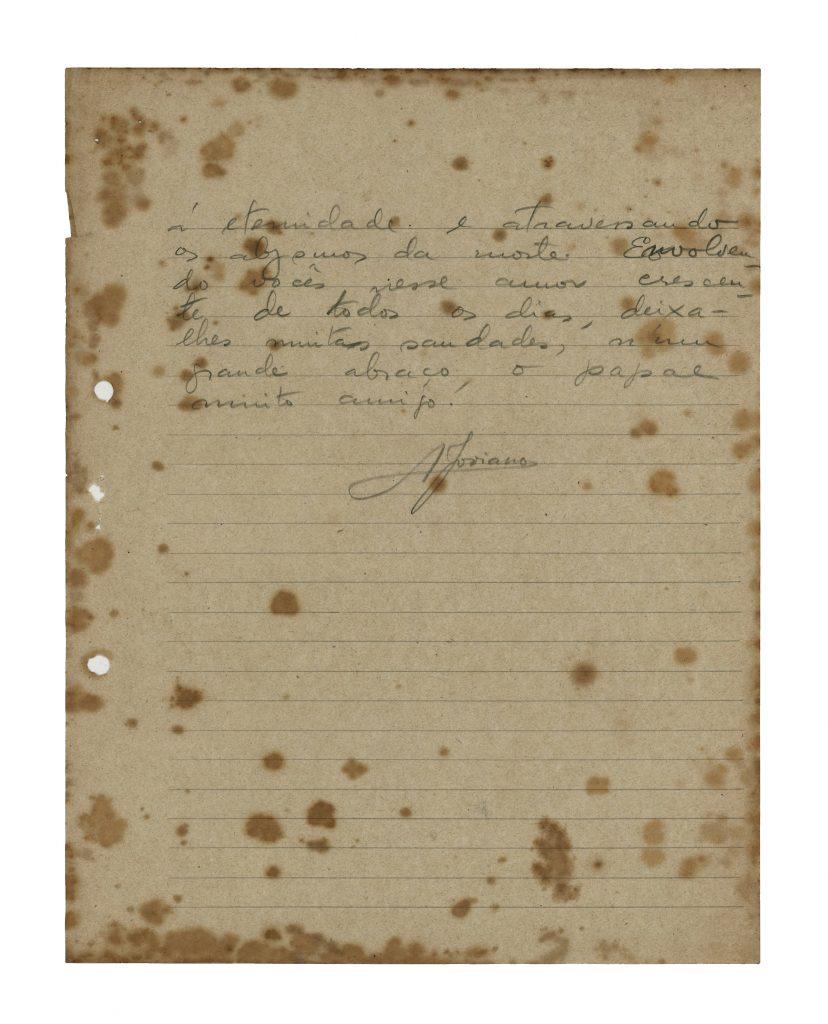 à eternidade e atravessando
os abysmos da morte. Envolven-
do vocês nesse amor crescen-
te de todos os dias, deixa-
lhes muitas saudades, n'um
grande abraço, o papae
muito amigo.
A Joviano